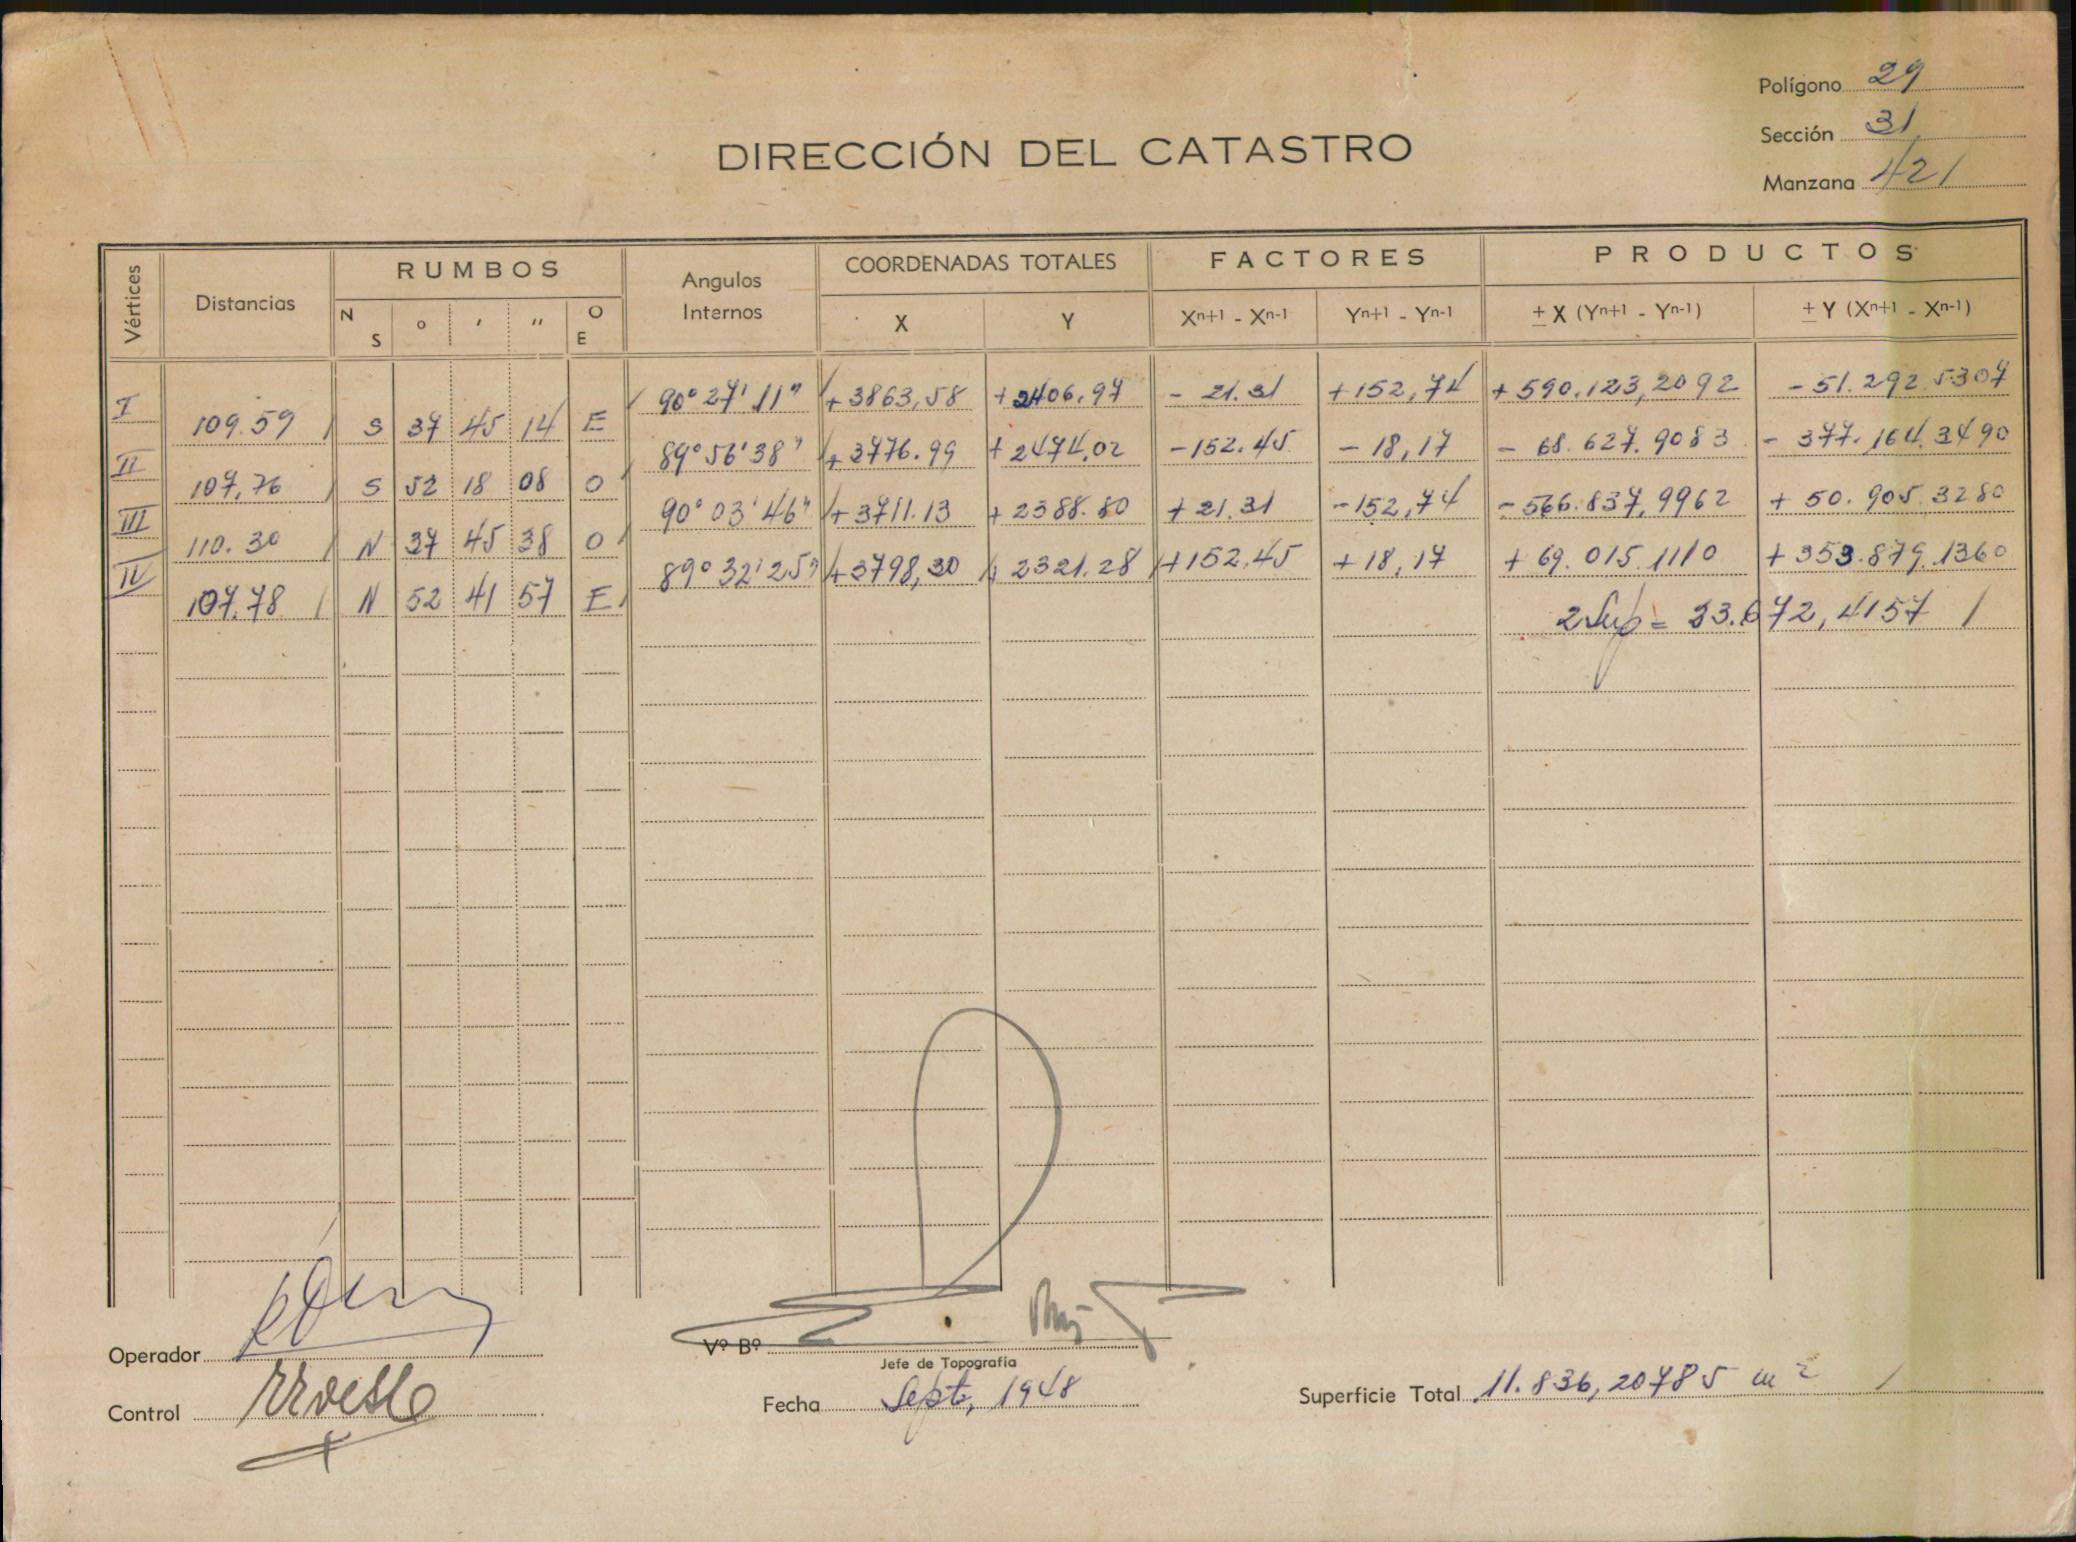 Polígono 29
Sección 31
Manzana 421
DIRECCIÓN DEL CATASTRO
Vértices Distancias RUMBOS Angulos Internos COORDENADAS TOTALES FACTORES PRODUCTOS
N S o ' " O E X Y Xn+1 - Xn-1 Yn+1 - Yn-1 ± X (Yn+1 - Yn-1) ± Y (Xn+1 - Xn-1)
I 90° 27' 11" +3863,58 +2406,97 - 21.31 +152,74 +590.123,2092 -51.292.5307
109.59 S 37 45 14 E
II 89° 56' 38" +3776.99 +2474,02 -152.45 - 18,17 - 68.627.9083 - 377.164.3490
107,76 S 52 18 08 O
III 90° 03' 46" +3711.13 +2388.80 +21.31 -152,74 -566.837,9962 + 50.905.3280
110.30 N 37 45 38 O
IV 89° 32' 25" +3798,30 + 2321.28 +152.45 +18,17 + 69.015.1110 +353.879.1360
107.78 N 52 41 57 E
2 Sup = 23.672,4157
Operador
Vº Bº
Jefe de Topografía
Control
Fecha Septe, 1948
Superficie Total 11.836,20785 m2